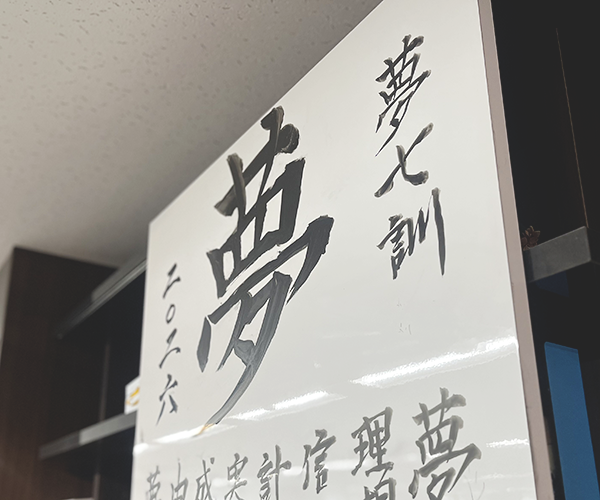 夢七訓
夢
二〇二六
夢
理想
信
計
実
成
由
夢